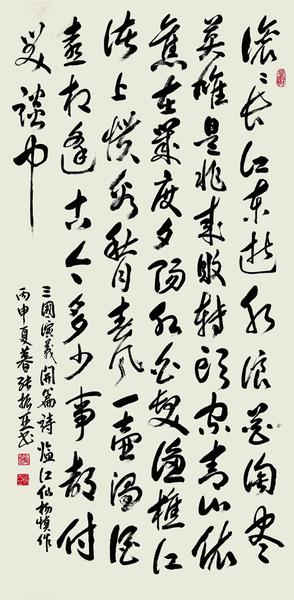 滚〻长江东逝水浪花淘尽
英雄是非成败转头空青山依
舊在幾度夕陽红白髮渔樵江
渚上惯看秋月春风一壶濁酒
喜相逢古今多少事都付
笑談中
三國演義開篇詩臨江仙楊慎作
丙申夏暮张振书